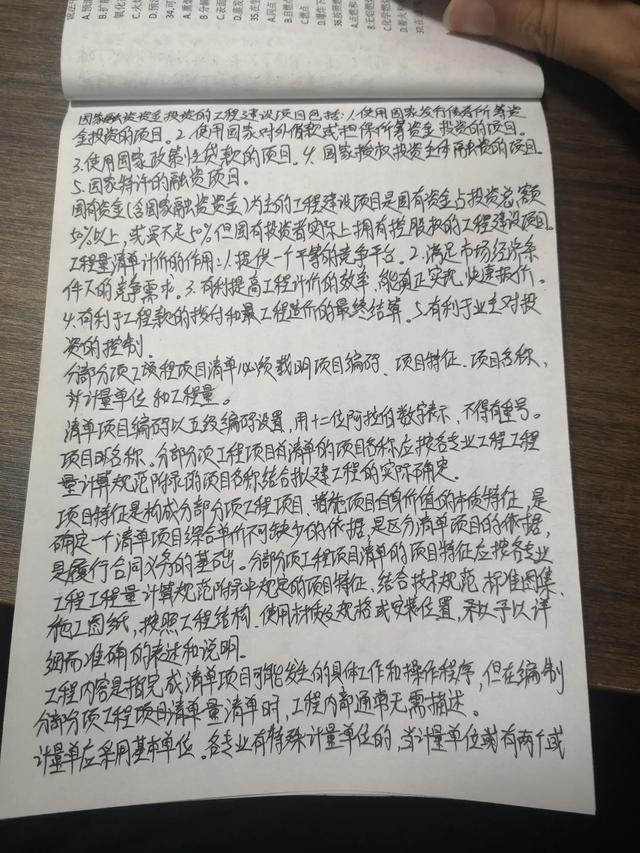 A.预混
B.扩散
氧化
C.火
D.预
34.可
A.蒸
B 分解
C.表面
D.蒸发
35.在
A.闪点
B.自燃点
C.燃点
D.爆炸下
36.按照燃
A.点燃和
B.无焰燃
C.化学燃
D.着火
37.在
国家融资资金投资的工程建设项目包括:1.使用国家发行债券所筹资
金投资的项目。2.使用国家对外借款或担保所筹资金投资的项目。
3.使用国家政策性贷款的项目。4.国家授权投资主体融资的项目.
5.国家特许的融资项目。
国有资金(含国家融资资金)为主的工程建设项目是国有资金占投资总额
50%以上,或虽不足50%但国有投资者实际上拥有控股权的工程建设项目。
工程量清单计价的作用:1.提供一个平等的竞争平台。2.满足市场经济条
件下的竞争需求。3.有利提高工程计价的效率,能真正实现快速报价。
4.有利于工程款的拨付和最工程造价的最终结算。5.有利于业主对投
资的控制.
分部分项工程项目清单必须载明项目编码、项目特征、项目名称,
计量单位和工程量。
清单项目编码以五级编码设置,用十二位阿拉伯数字表示,不得有重号。
项目名称。分部分项工程项目清单的项目名称应按各专业工程工程
量计算规范附录的项目名称结合拟建工程的实际确定.
项目特征是构成分部分项工程项目、措施项目自身价值的本质特征,是
确定一个清单项目综合单价不可缺少的依据,是区分清单项目的依据,
是履行合同义务的基础。分部分项工程项目清单的项目特征应按各专业
工程工程量计算规范附录中规定的项目特征,结合技术规范、标准图集、
施工图纸,按照工程结构、使用材质及规格或安装位置,予以详
细而准确的表述和说明.
工程内容是指完成清单项目可能发生的具体工作和操作程序,但在编制
分部分项工程项目清单量清单时,工程内部通常无需描述。
计量单应采用基本单位。各专业有特殊计量单位的,当计量单位有两个或